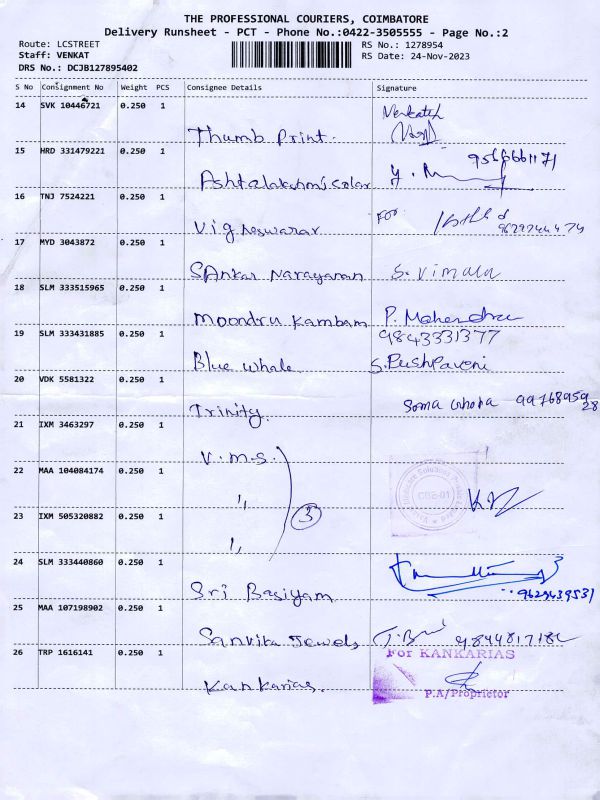 THE PROFESSIONAL COURIERS, COIMBATORE
Delivery Runsheet - PCT - Phone No.:0422-3505555 - Page No.:2
Route: LCSTREET
Staff: VENKAT
DRS No.: DCJB127895402
RS No.: 1278954
RS Date: 24-Nov-2023
S No Consignment No Weight PCS Consignee Details Signature
14 SVK 10446721 0.250 1
Thumb Print. Venkatesh
15 HRD 331479221 0.250 1
Ashtalakshmi Solar Y.
16 TNJ 7524221 0.250 1
Vigneswarar For
17 MYD 3043872 0.250 1
SAnkar Narayanan S. Vimala
18 SLM 333515965 0.250 1
Moondru Kambam P. Mahendra
9843331377
19 SLM 333431885 0.250 1
Blue Whale S. Pushpaveni
20 VDK 5581322 0.250 1
Trinity.
21 IXM 3463297 0.250 1
V.M.S.
22 MAA 104084174 0.250 1
,, 3
CBE-01
23 IXM 505320882 0.250 1
,,
24 SLM 333440860 0.250 1
Sri Basiyam 9629439531
25 MAA 107198902 0.250 1
Sanvita Jewels
26 TRP 1616141 0.250 1
Kankarias.
For KANKARIAS
P.A/Proprietor